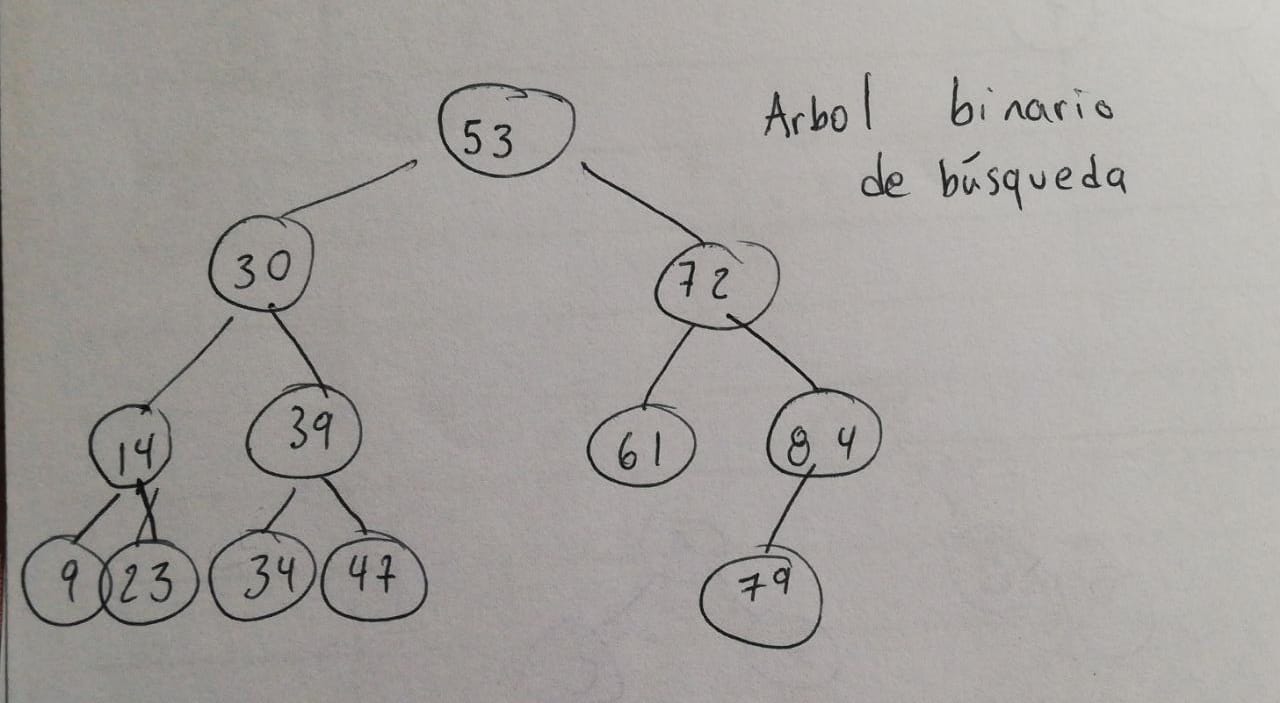 53
Arbol binario
de búsqueda
30
72
14
39
61
84
9
23
34
47
79